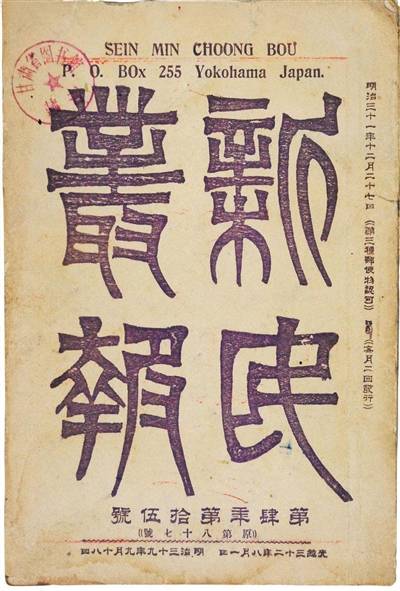 SEIN MIN CHOONG BOU
P. O. BOx 255 Yokohama Japan.
明治三十一年十二月二十七日（第三種郵便物認可）（每月二回發行）
新民
叢報
第肆年第拾伍號
（原第八十七號）
光緒三十二年八月一日 明治三十九年九月十八日